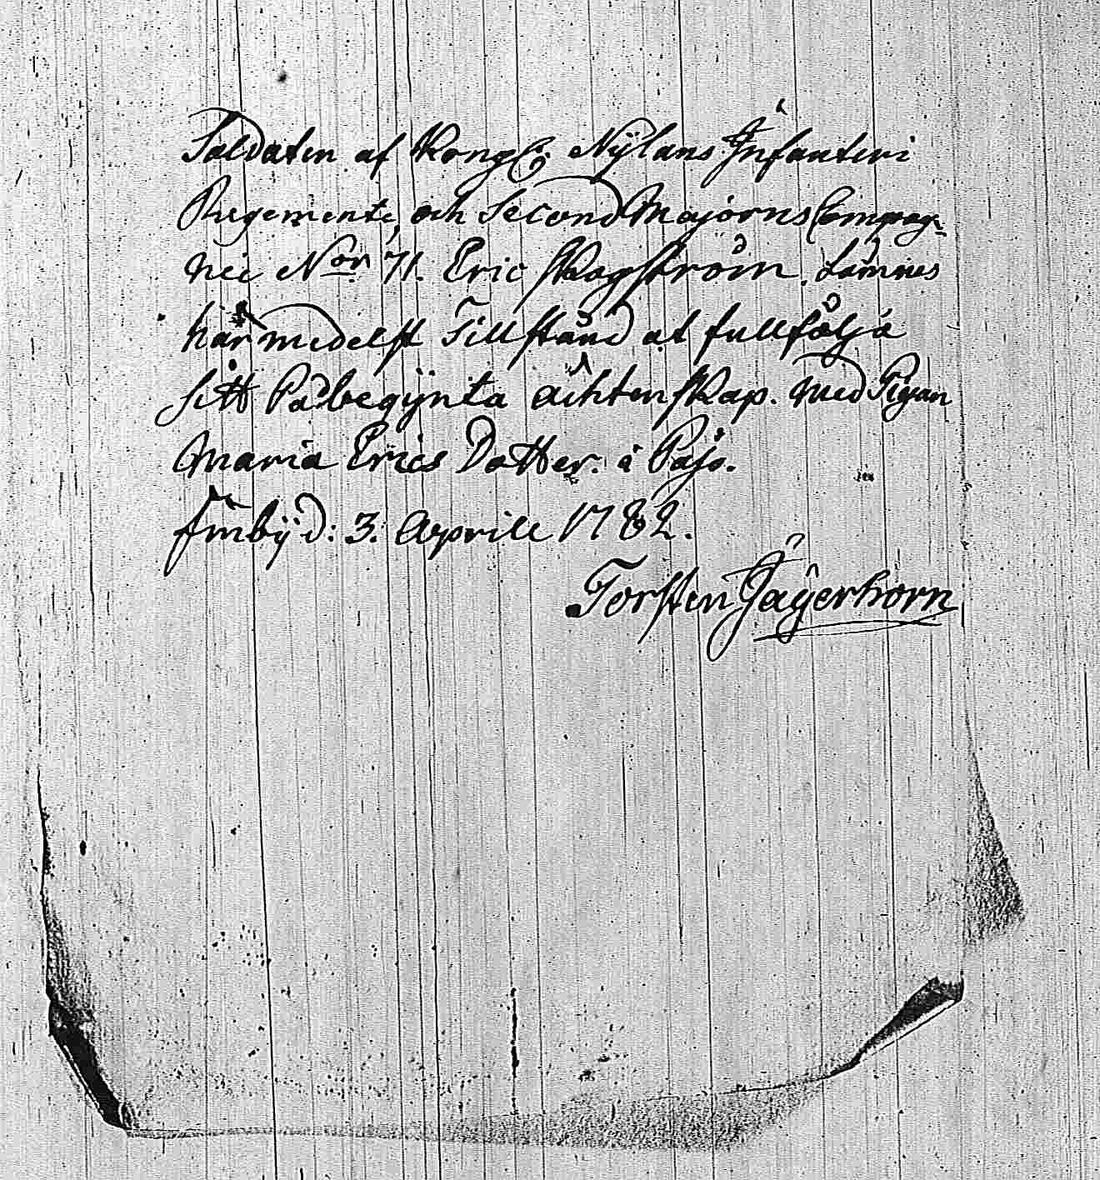 Soldaten af Kongl: Nÿlans Infanteri
Regemente, och Second Majorns Compag-
nie No 71. Eric Skogström. Lämnes
härmedelst Tillstånd at fullfölja
sitt Påbegÿnta ächtenskap. med Pigan
Maria Erics Dotter. i Påjo.
finbÿ d: 3. Aprill 1782.
Torsten Jägerhorn